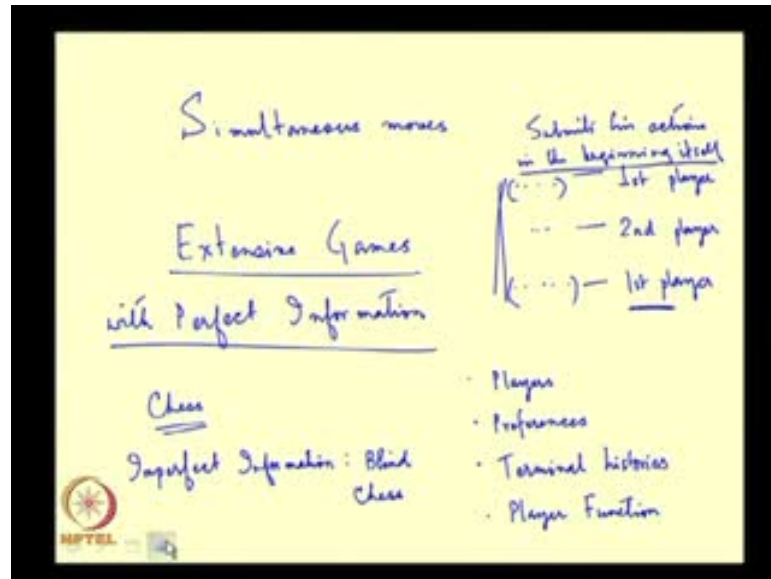 Simultaneous moves
Submits his actions
in the beginning itself
(....) — 1st player
.. — 2nd player
(.....) — 1st player
Extensive Games
with Perfect Information
Chess
Imperfect Information: Blind
Chess
· Players
· Preferences
· Terminal histories
· Player Function
NPTEL